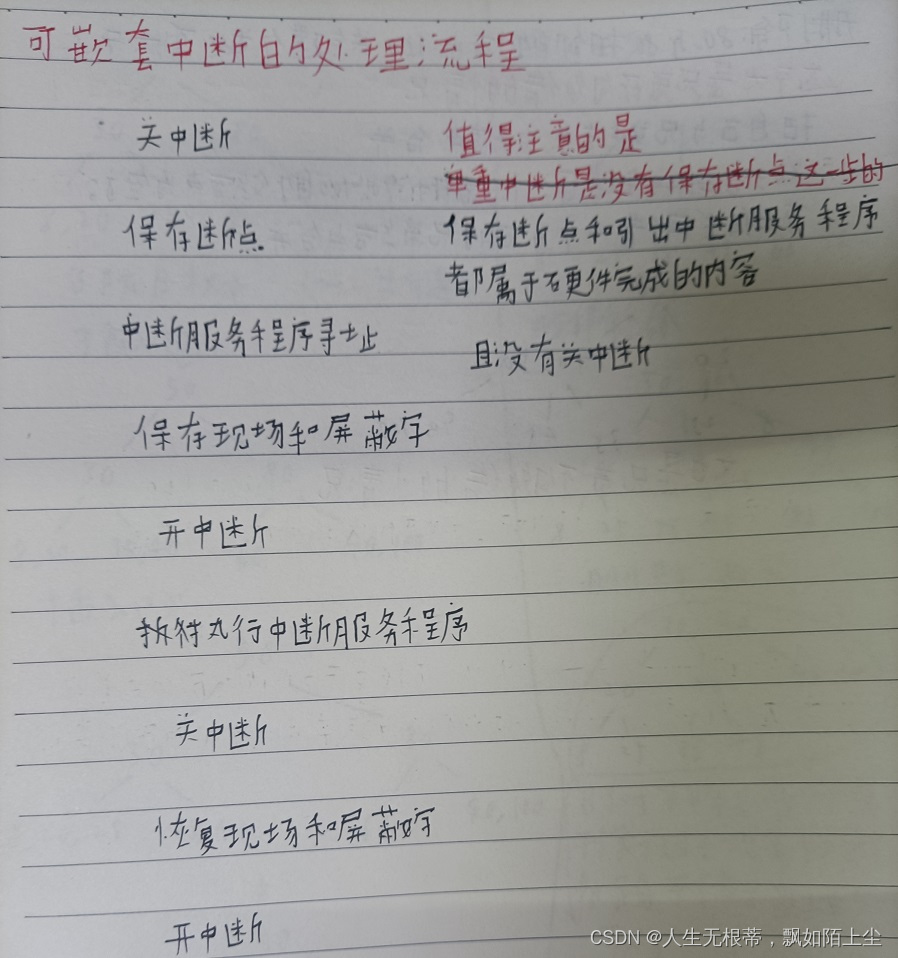 可嵌套中断的处理流程
关中断
值得注意的是
单重中断是没有保存断点这一步的
保存断点
保存断点和引出中断服务程序
都属于硬件完成的内容
中断服务程序寻址
且没有关中断
保存现场和屏蔽字
开中断
执行中断服务程序
关中断
恢复现场和屏蔽字
开中断
CSDN @人生无根蒂，飘如陌上尘